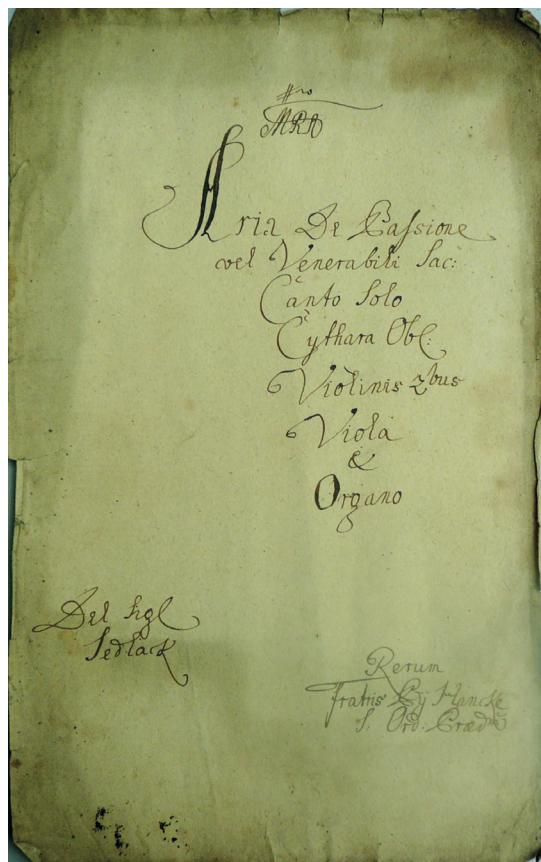 Nro
MRA
Aria De Passione
vel Venerabili Sac:
Canto Solo
Cythara Obl:
Violinis 2bus
Viola
&
Organo
Del Sigl
Sedlack
Rerum
Fratris Pij Hancke
S. Ord. Præd